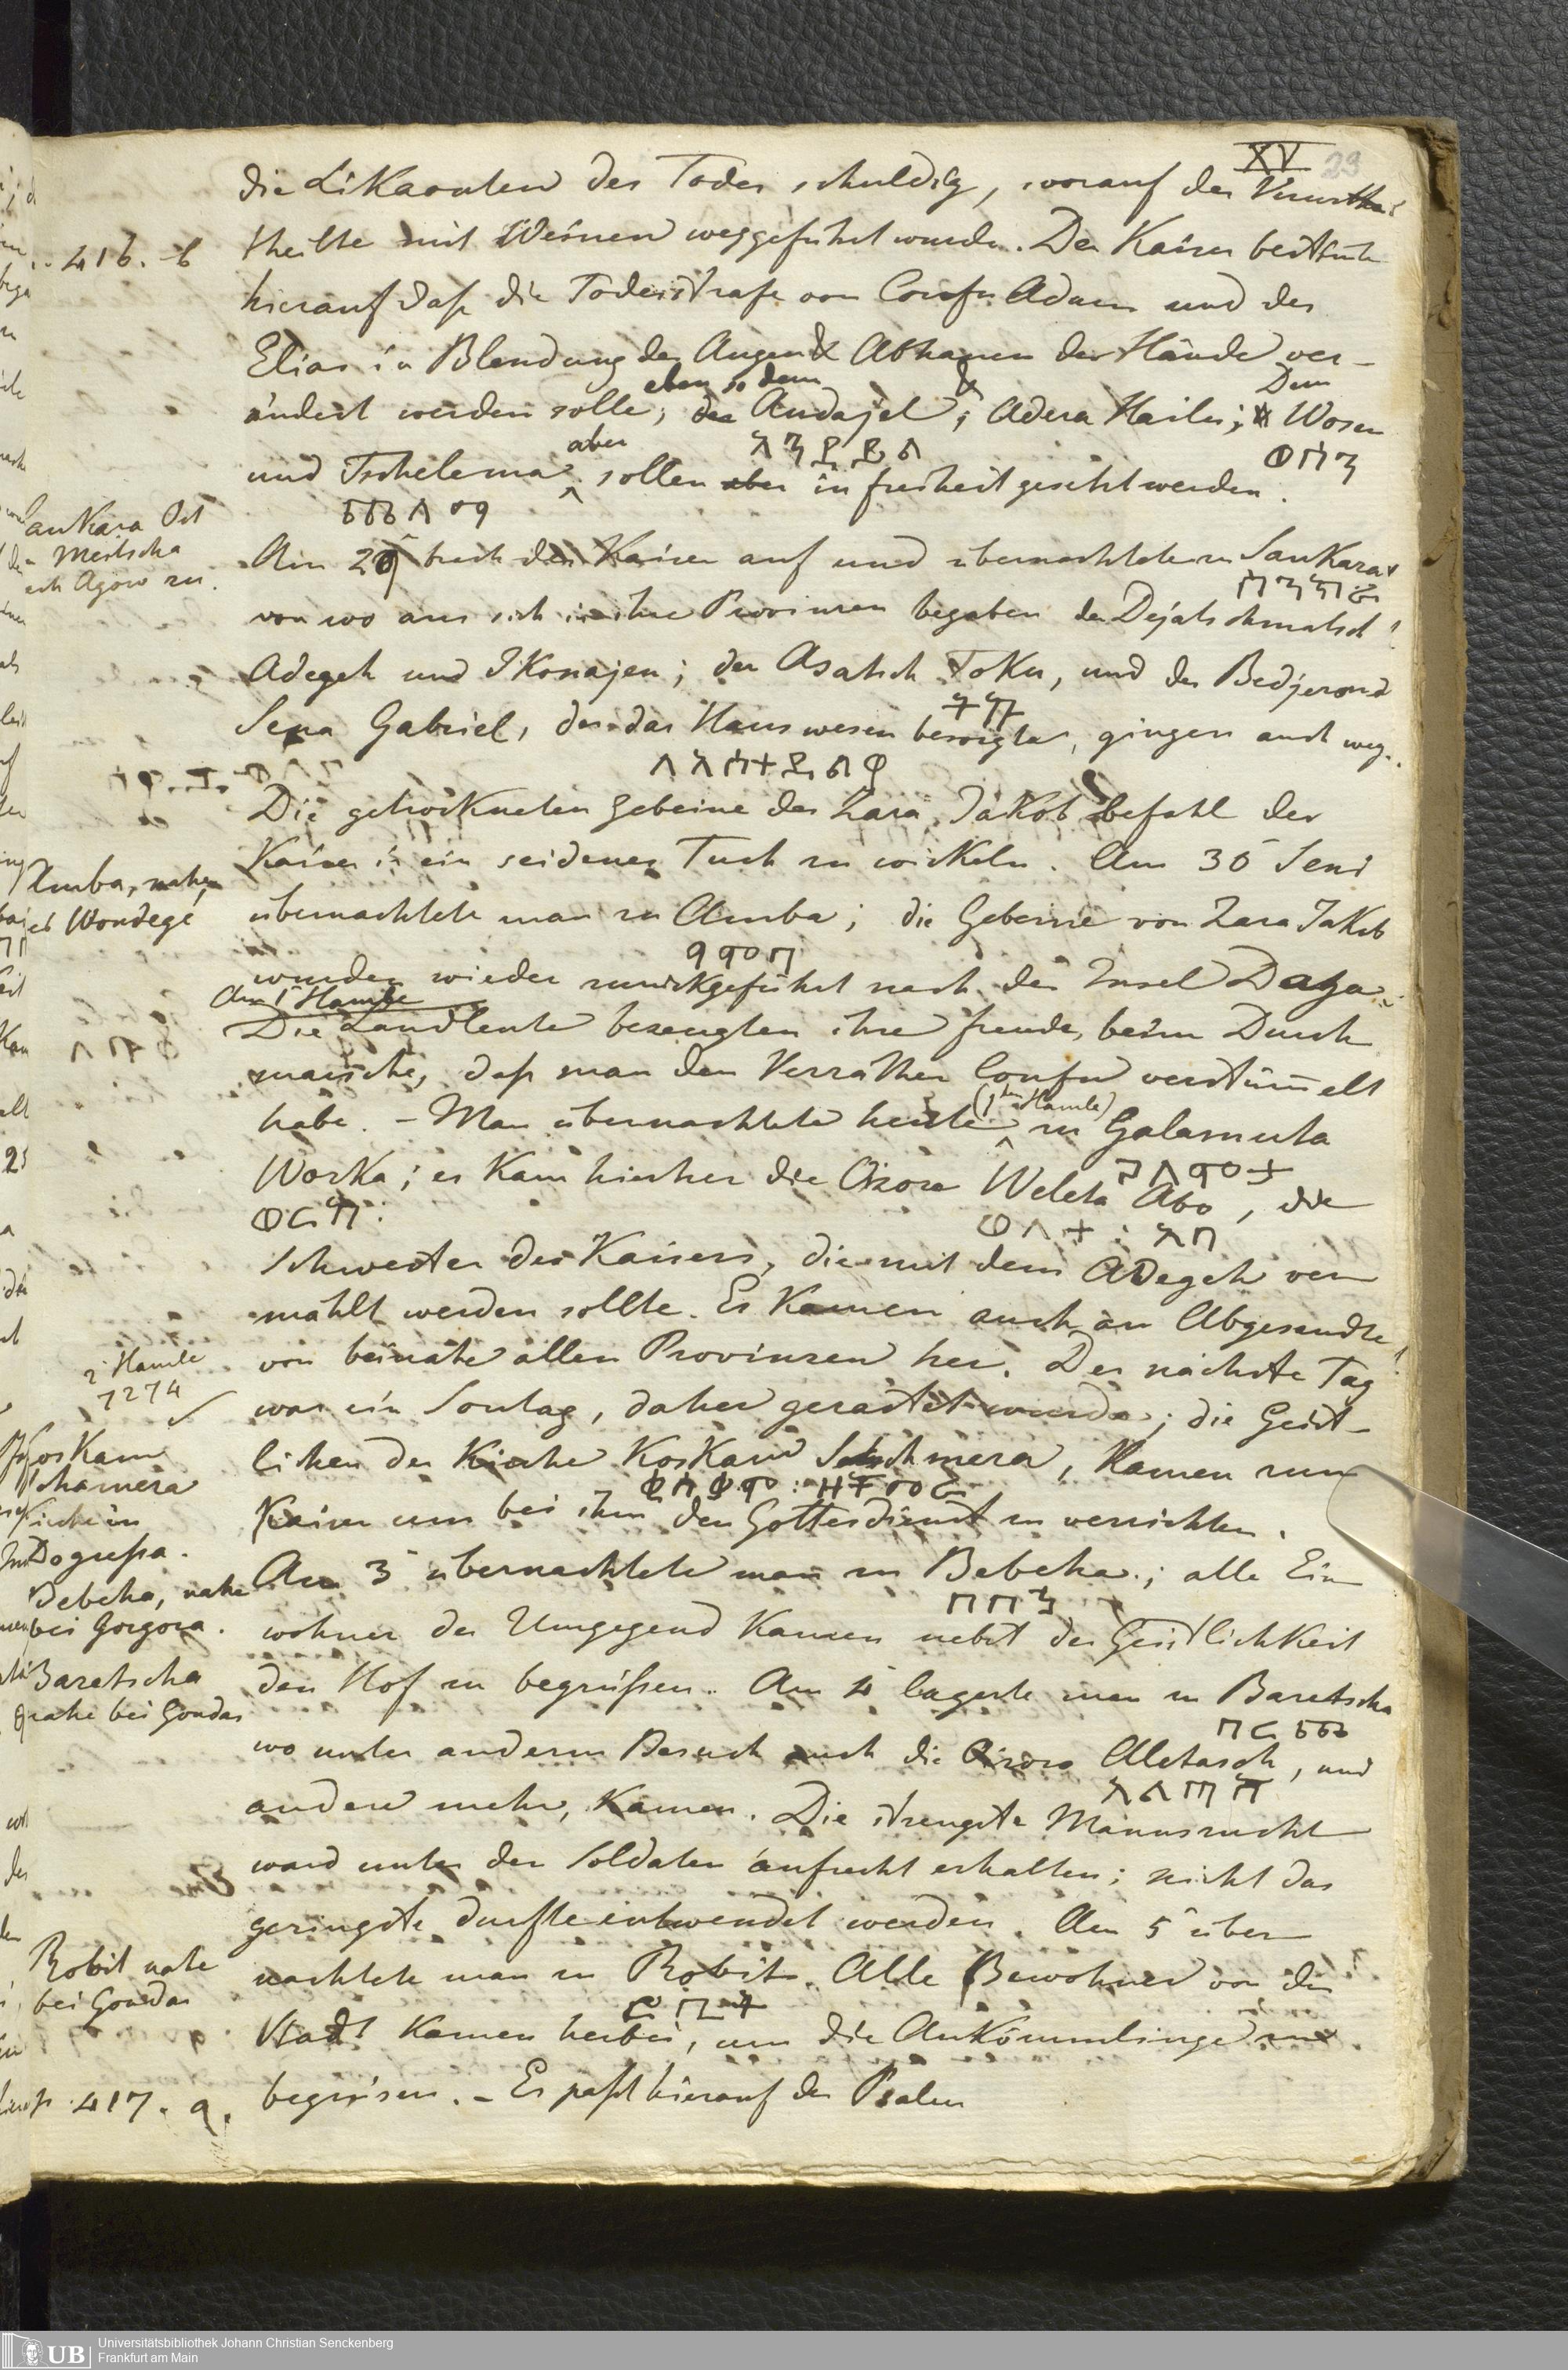 XV 29
die Likaonten des Todes schuldig, worauf der Verurthei
416. b theilte mit Weinen weggeführt wurde. Der Kaiser bestimte
hierauf daß die Todesstrafe von Confu Adam und des
Elias in Blendung der Augen & Abhauen der Hände ver-
eben so dem & Dem
ändert werden solle; der Andajel; Adera Hailu; Wosen
አንደደለ ወሰን
und Tschelema aber sollen aber in freiheit gesetzt werden.
ጨለማ
Sankara Ort
in Meitscha
Agow zu.
Am 29 brach der Kaiser auf und übernachtete zu Sankara
ሰንከረ
von wo aus sich in ihre Provinzen begaben der Dejatschmatsch
Adegeh und Ikonajen; der Asatsch Toku, und der Bedjerond
ቶኩ
Sena Gabriel, der das Hauswesen besorgte, gingen auch weg.
Die getrockneten Gebeine des Zara Jakob befahl der
Kaiser in ein seidenes Tuch zu wickeln. Am 30 Seni
Amba, nahe
bei Wondege
übernachtete man zu Amba; die Gebeine von Zara Jakob
ዓምባ
wurden wieder zurückgeführt nach der Insel Daga.
Am 1 Hamle
Die Landleute bezeugten ihre freude, beim Durch
marsche, daß man den Verräther Confu verstümelt
habe. – Man übernachtete heute (1ten Hamle) zu Galamuta
ገለመተ
Worka; es kam hierher die Oizoro Weleta Abo, die
ወርቀ: ወለተ : አቦ
Schwester des Kaisers, die mit dem Adegeh ver
mählt werden sollte. Es kamen auch an Abgesandte
2 Hamle
7274
von beinahe allen Provinzen her. Der nächste Tag
war ein Sontag, daher gerastet wurde; die Geist-
Koskam
Schamera
Kirche in
Dogussa.
lichen der Kirche Koskam Schmera, kamen zum
Kaiser um bei ihm den Gottesdienst zu verrichten.
Bebeha, nahe
bei Gorgora.
Am 3 übernachtete man zu Bebeha; alle Ein
በበኃ
wohner der Umgegend kamen nebst der Geistlichkeit
Baretscha
nahe bei Gondar
den Hof zu begrüßen. Am 4 lagerte man zu Baretscha
በርጫ
wo unter anderm Besuch auch die Oizoro Aletasch, und
andere mehr, kamen. Die strengste Mannszucht
ward unter den Soldaten aufrecht erhalten; nicht das
geringste durfte entwendet werden. Am 5 über
Robit nahe
bei Gondar
nachtete man zu Robit. Alle Bewohner von der
ሮቢት
Stadt kamen herbei, um die Ankömmlinge zu
417. a. begrüsen. – Es paßt hierauf der Psalm
UB Universitätsbibliothek Johann Christian Senckenberg
Frankfurt am Main